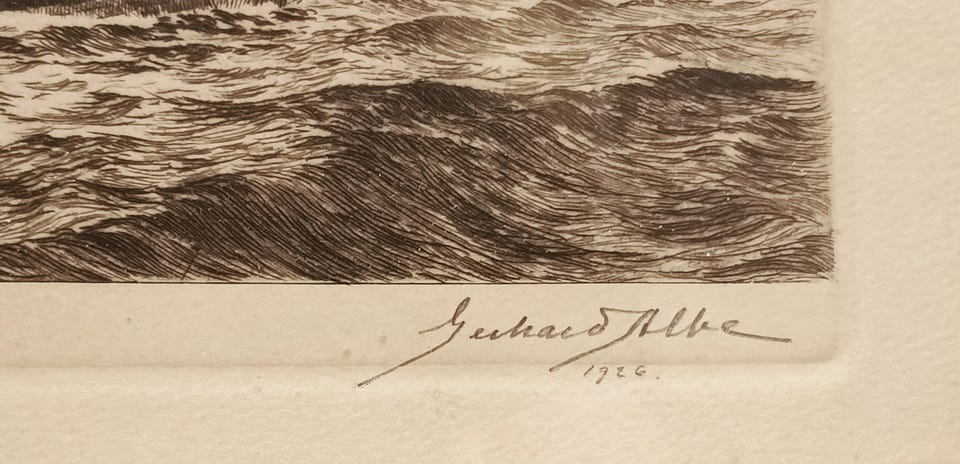 Gerhard Albe
1926.